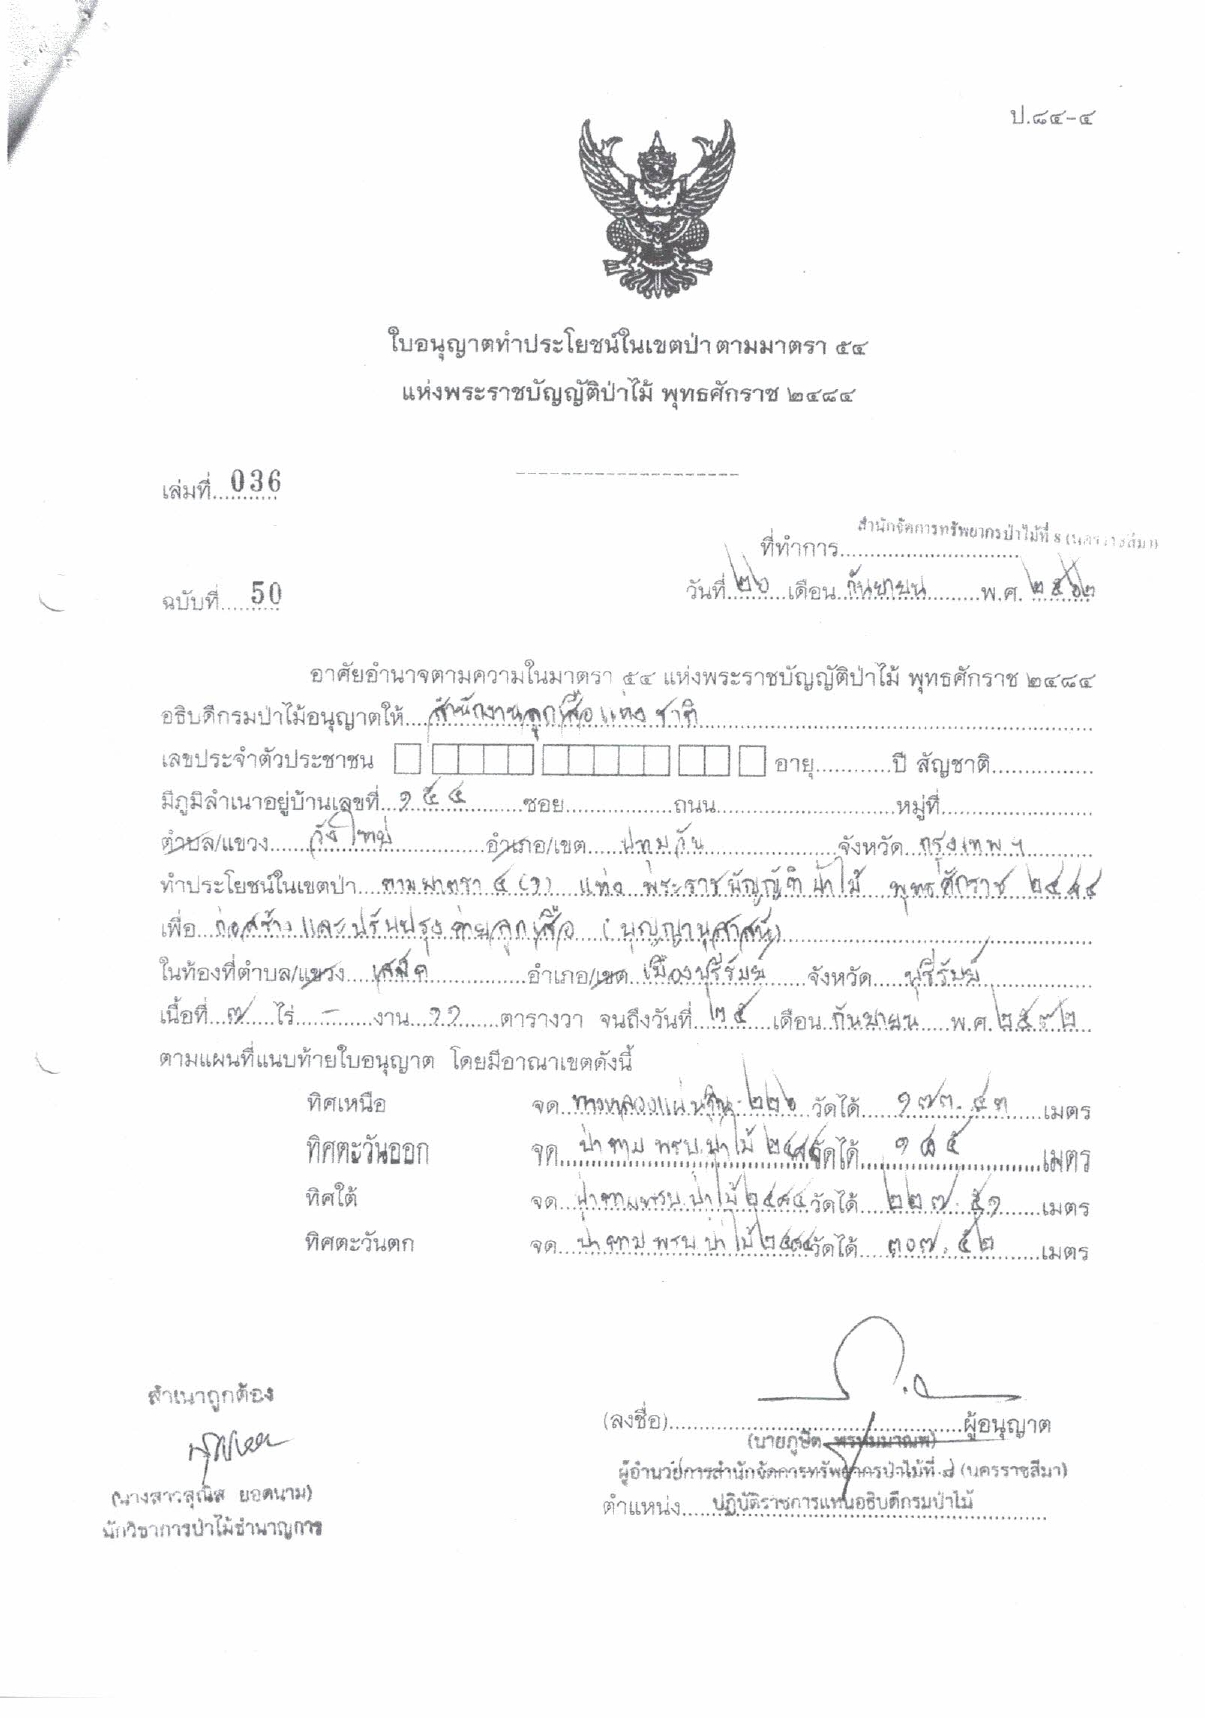 ป.๘๔-๔
ใบอนุญาตทำประโยชน์ในเขตป่า ตามมาตรา ๕๔
แห่งพระราชบัญญัติป่าไม้ พุทธศักราช ๒๔๘๔
เล่มที่...036
ที่ทำการ...สำนักจัดการทรัพยากรป่าไม้ที่ ๘ (นครราชสีมา)
ฉบับที่.....50
วันที่ ๒๖ เดือน กันยายน พ.ศ. ๒๕๖๒
อาศัยอำนาจตามความในมาตรา ๕๔ แห่งพระราชบัญญัติป่าไม้ พุทธศักราช ๒๔๘๔
อธิบดีกรมป่าไม้อนุญาตให้...สำนักงานลูกเสือแห่งชาติ
เลขประจำตัวประชาชน อายุ............ปี สัญชาติ...............
มีภูมิลำเนาอยู่บ้านเลขที่...๑๕๔...ซอย...............ถนน...............หมู่ที่...............
ตำบล/แขวง...วังใหม่...อำเภอ/เขต...ปทุมวัน...จังหวัด...กรุงเทพฯ
ทำประโยชน์ในเขตป่า...ตามมาตรา ๔ (๑) แห่ง พระราชบัญญัติป่าไม้ พุทธศักราช ๒๔๘๔
เพื่อ...ก่อสร้างและปรับปรุงค่ายลูกเสือ (บุญญานุศาสน์)
ในท้องที่ตำบล/แขวง...เสม็ด...อำเภอ/เขต...เมืองบุรีรัมย์...จังหวัด...บุรีรัมย์
เนื้อที่...๗...ไร่...-...งาน...๒๒...ตารางวา จนถึงวันที่...๒๕...เดือน...กันยายน...พ.ศ.๒๕๙๒
ตามแผนที่แนบท้ายใบอนุญาต โดยมีอาณาเขตดังนี้
ทิศเหนือ จด ทางหลวงแผ่นดิน ๒๒๖ วัดได้ ๑๗๓.๔๓ เมตร
ทิศตะวันออก จด ป่าตาม พรบ.ป่าไม้ ๒๔๘๔ วัดได้ ๑๘๕ เมตร
ทิศใต้ จด ป่าตามพรบ.ป่าไม้ ๒๔๘๔ วัดได้ ๒๒๗.๕๑ เมตร
ทิศตะวันตก จด ป่าตาม พรบ ป่าไม้ ๒๔๘๔ วัดได้ ๓๐๗.๕๒ เมตร
(ลงชื่อ)...ผู้อนุญาต
(นายภูษิต พรหมมาณพ)
ผู้อำนวยการสำนักจัดการทรัพยากรป่าไม้ที่ ๘ (นครราชสีมา)
ตำแหน่ง...ปฏิบัติราชการแทนอธิบดีกรมป่าไม้
สำเนาถูกต้อง
(นางสาวสุณิส ยอดนาม)
นักวิชาการป่าไม้ชำนาญการ